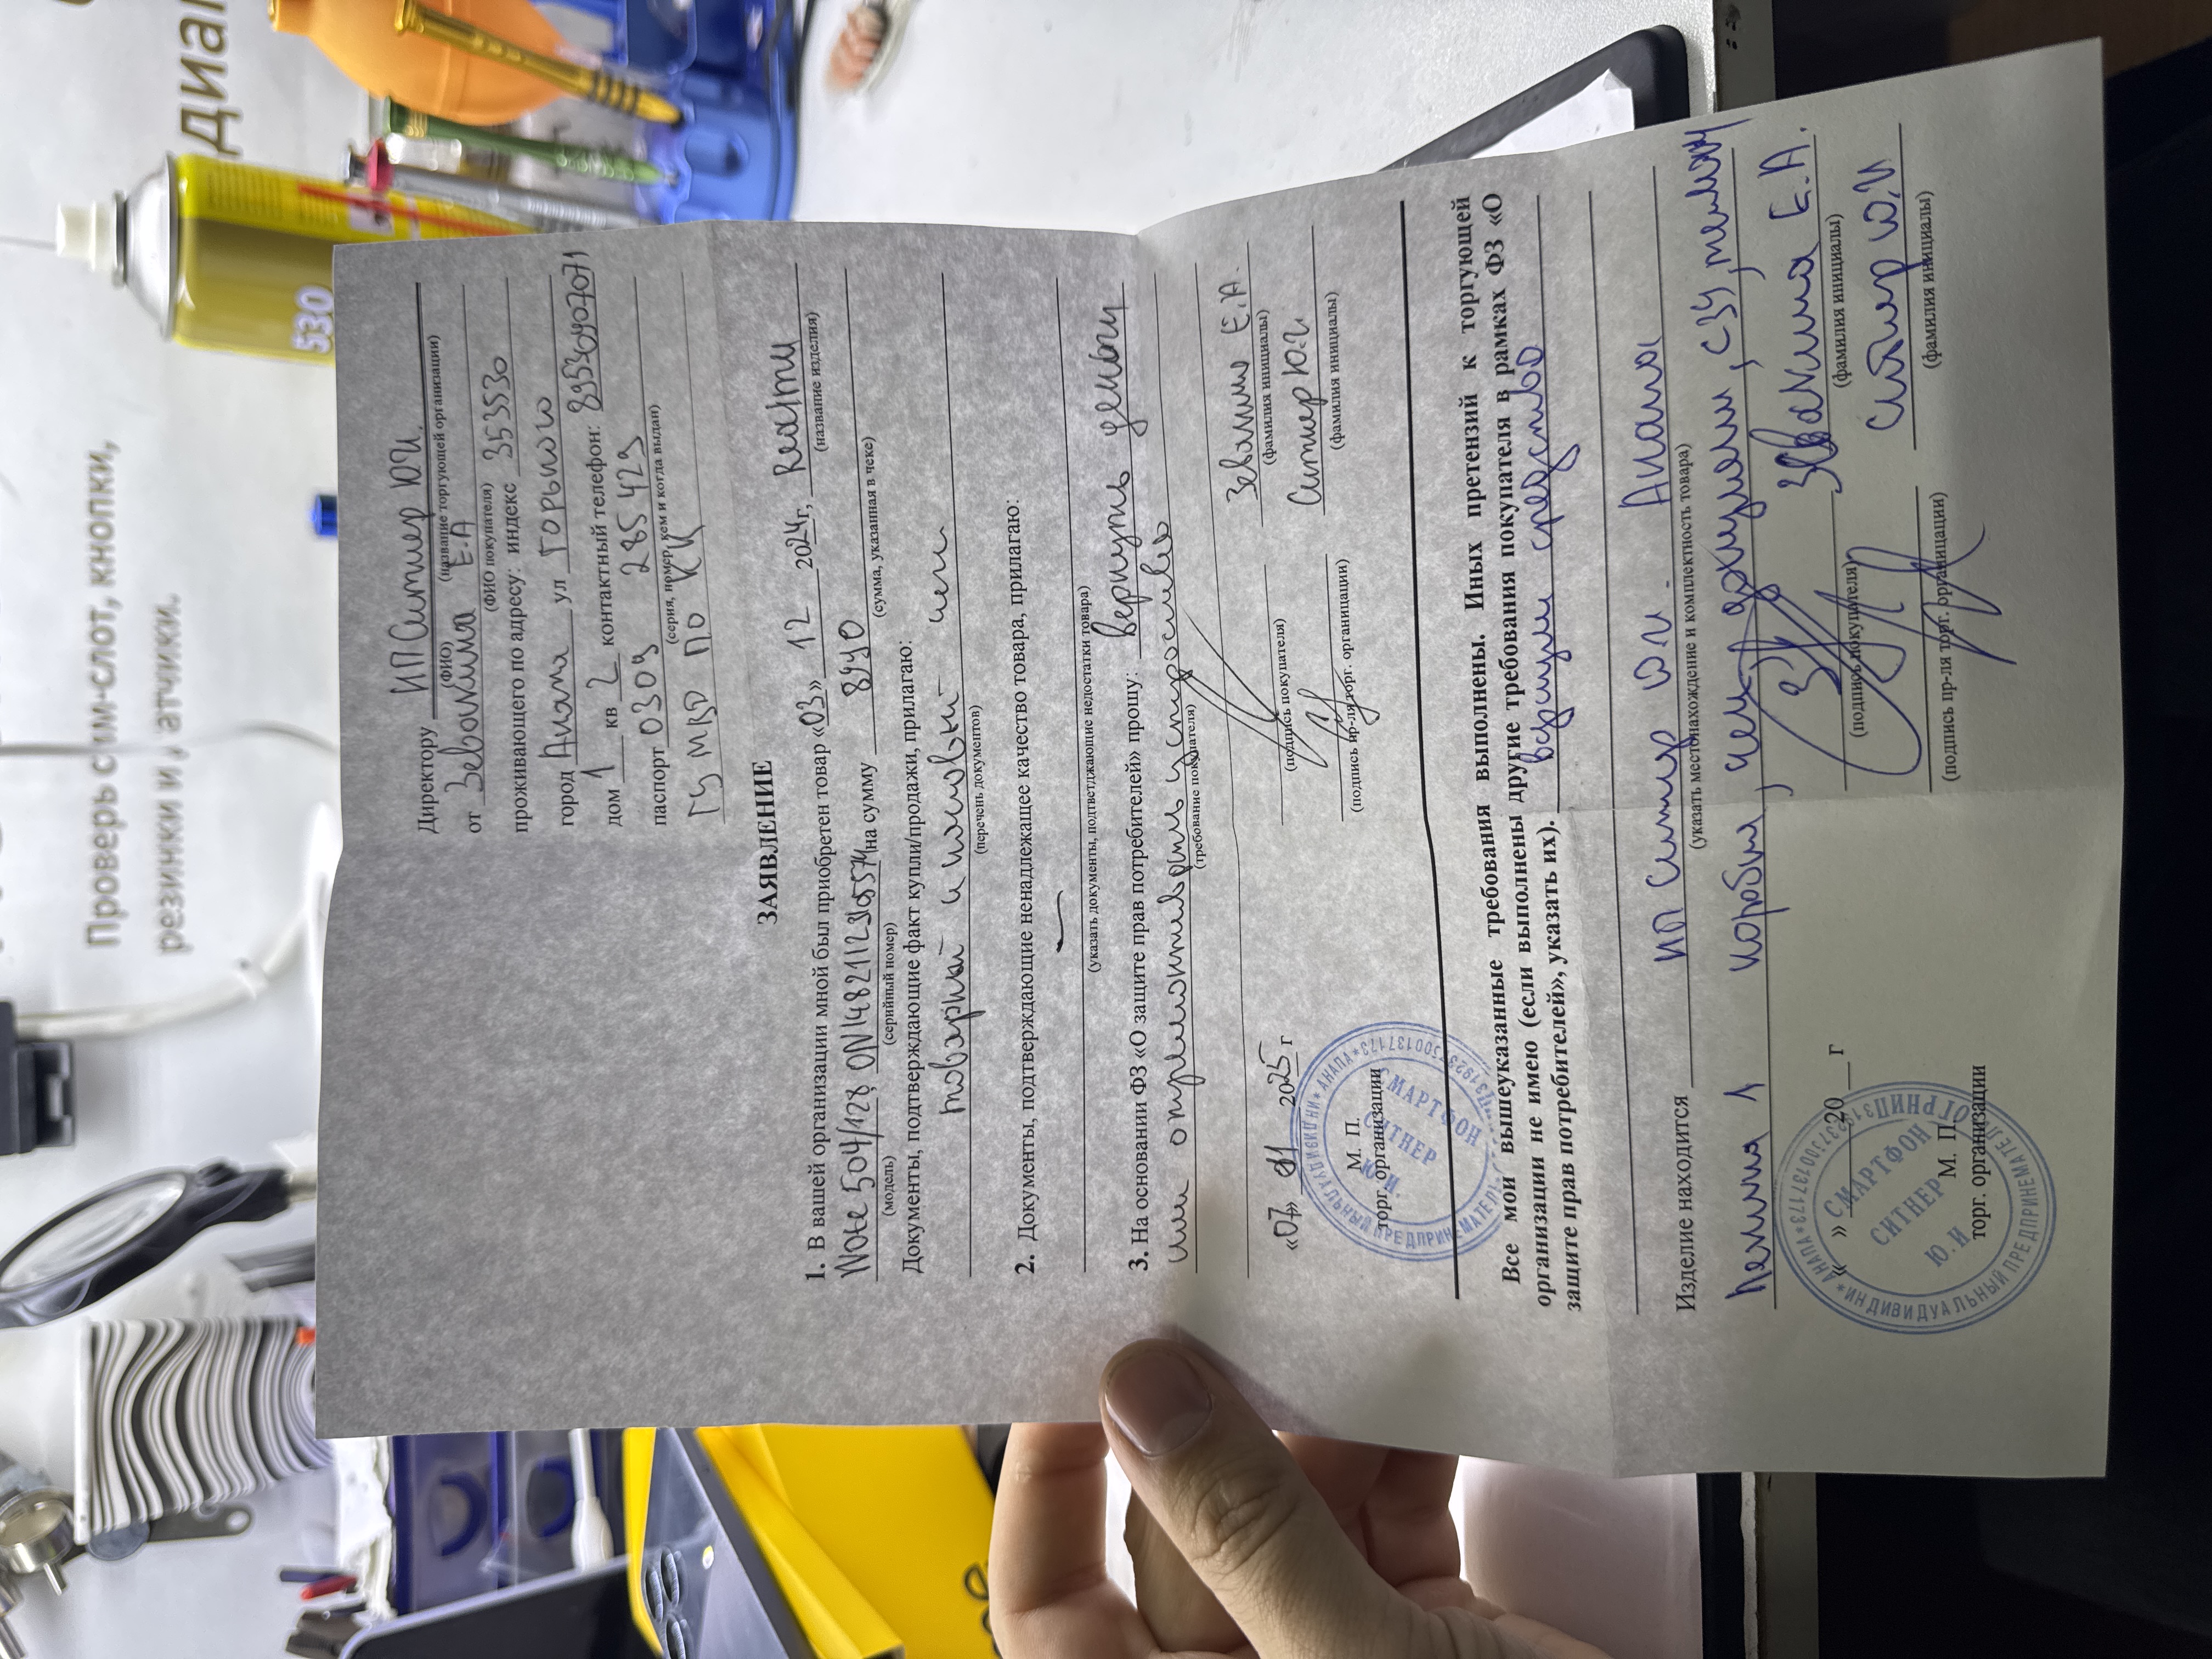 Проверь сим-слот, кнопки,
резинки и датчики.
диаг
530
Директору ИП Ситнер Ю.И.
(ФИО) (название торгующей организации)
от Зевакина Е.А
(ФИО покупателя)
проживающего по адресу: индекс 353530
город Анапа ул Горького
дом 1 кв 2 контактный телефон: 89530907071
паспорт 0309 285429
(серия, номер, кем и когда выдан)
ГУ МВД ПО КК
ЗАЯВЛЕНИЕ
1. В вашей организации мной был приобретен товар «03» 12 2024г, Realmi
(название изделия)
Note 504/128, на сумму 8490
(модель) (серийный номер) (сумма, указанная в чеке)
Документы, подтверждающие факт купли/продажи, прилагаю:
товарный и кассовый чеки
(перечень документов)
2. Документы, подтверждающие ненадлежащее качество товара, прилагаю:
—
(указать документы, подтветджающие недостатки товара)
3. На основании ФЗ «О защите прав потребителей» прошу: Вернуть деньги
или отремонтировать устройство
(требование покупателя)
«07» 01 2025 г Зевакина Е.А.
(подпись покупателя) (фамилия инициалы)
М. П. Ситнер Ю.И
торг. организации (подпись пр-ля торг. организации) (фамилия инициалы)
*ИНДИВИДУАЛЬНЫЙ ПРЕДПРИНИМАТЕЛЬ* *АНАПА*
СМАРТФОН
СИТНЕР
Ю. И.
Все мои вышеуказанные требования выполнены. Иных претензий к торгующей
организации не имею (если выполнены другие требования покупателя в рамках ФЗ «О
защите прав потребителей», указать их). средство
Изделие находится ИП Ситнер Ю.И. Анапа
(указать местонахождение и комплектность товара)
Ленина 1 коробка, чек, , СЗУ, телефон
« » 20 г Зевакина Е.А.
(подпись покупателя) (фамилия инициалы)
М. П. Ситнер Ю.И
торг. организации (подпись пр-ля торг. организации) (фамилия инициалы)
*ИНДИВИДУАЛЬНЫЙ ПРЕДПРИНИМАТЕЛЬ* ОГРНИП 319237500137173 *АНАПА*
СМАРТФОН
СИТНЕР
Ю. И.